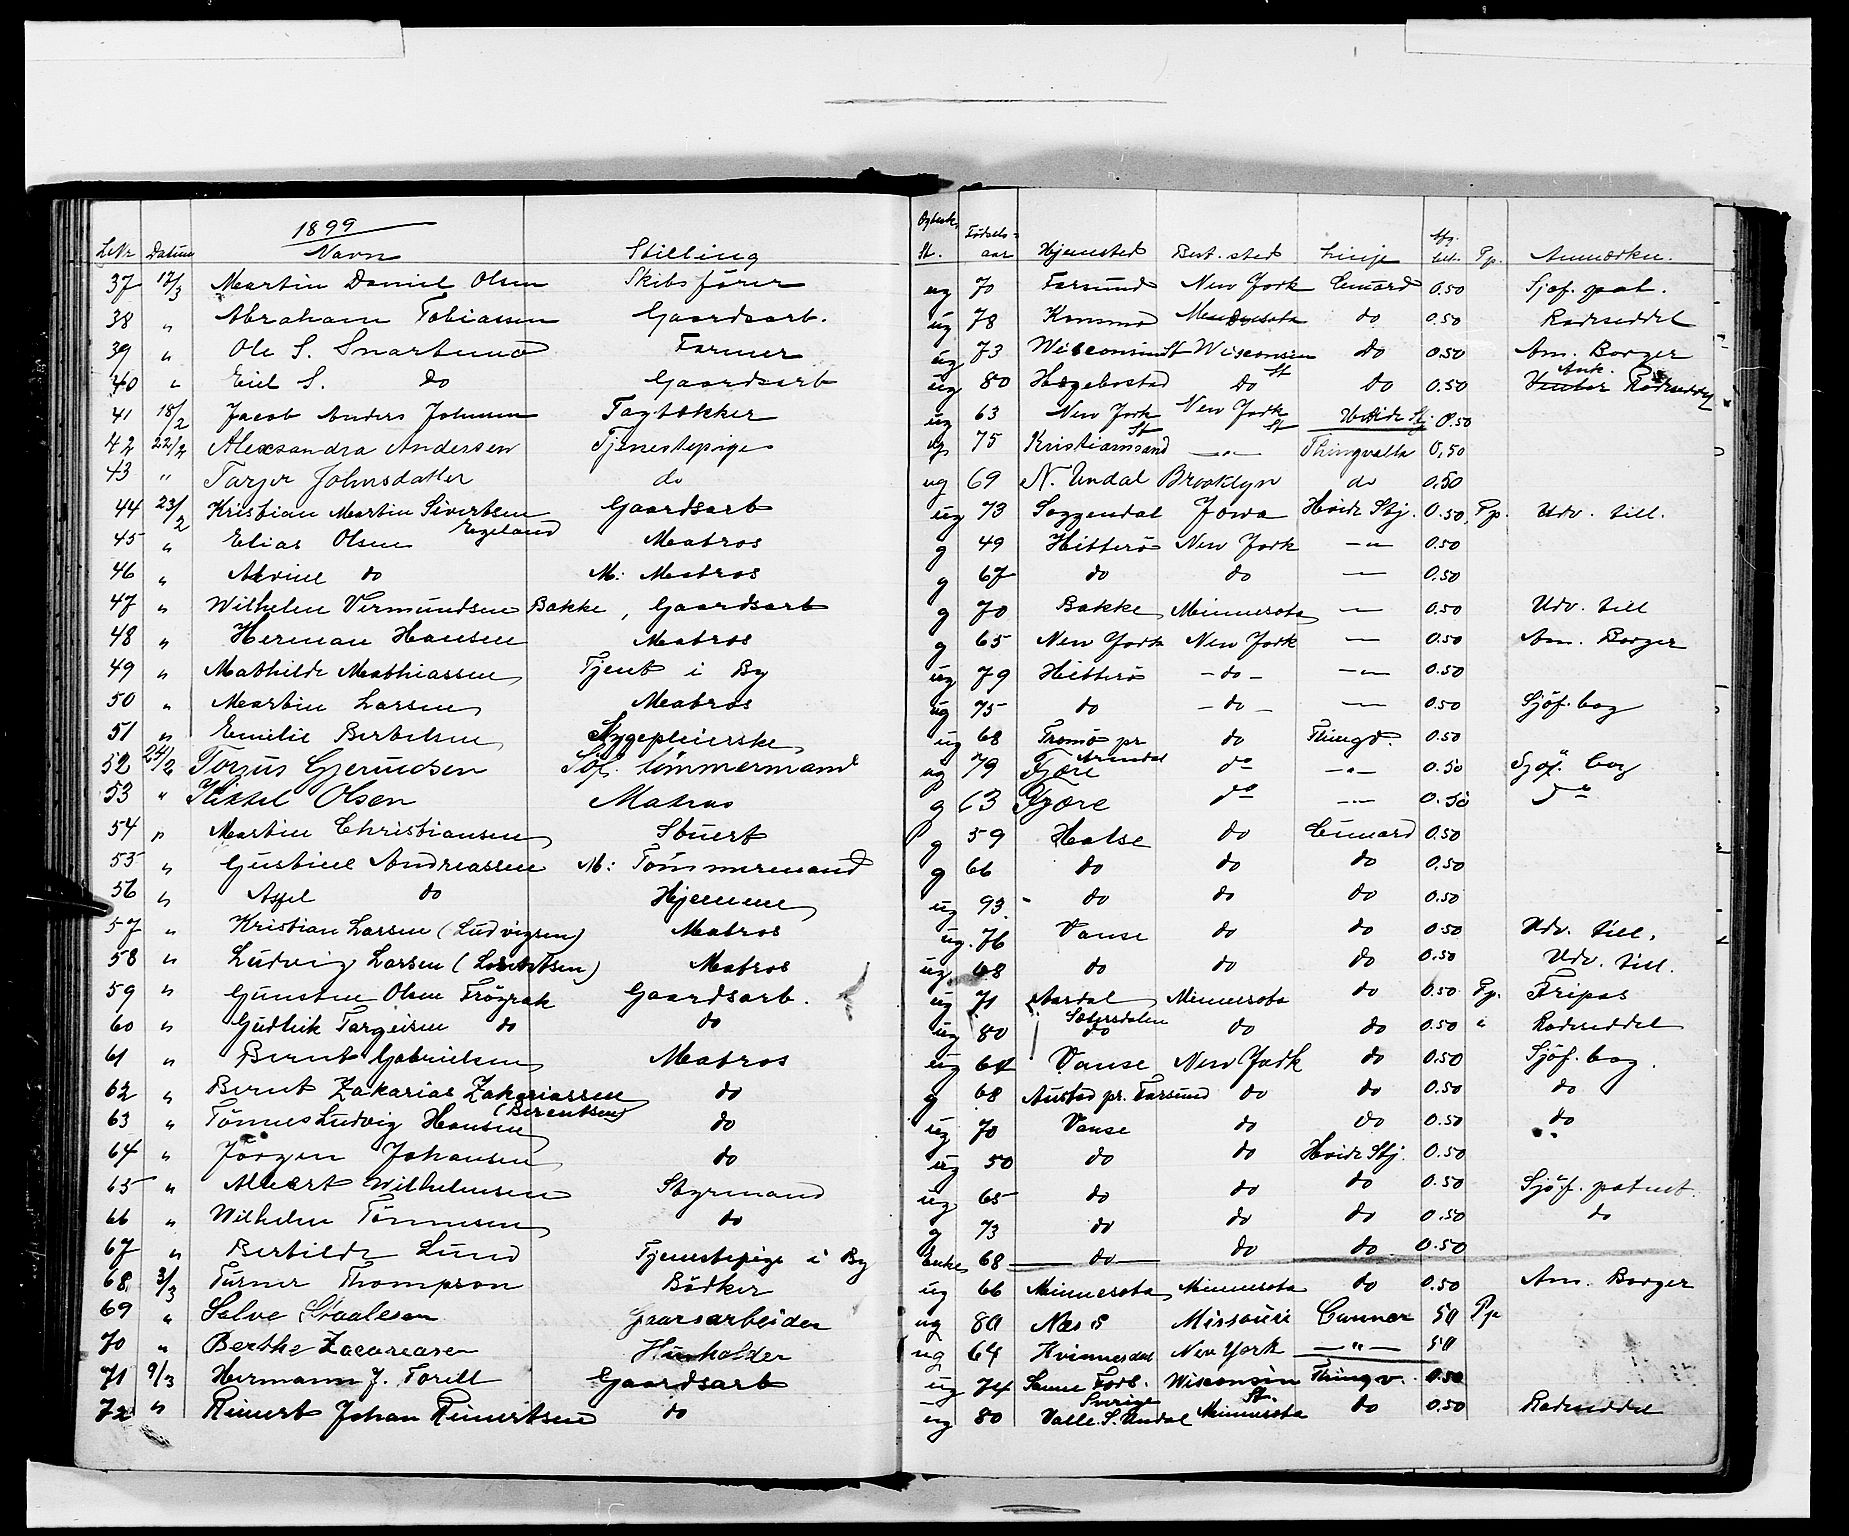 1899
LNr Datum Navn Stilling St. Fødselsaar Hjemsted Best. sted Linje Pp. Anmærkn.
37 12/3 Martin Daniel Olsen Skibsfører ug 70 Farsund New York Cunard 0.50 Sjøf. pat.
38 " Abraham Tobiassen Gaardsarb. ug 78 do 0.50 Rodeseddel
39 " Ole S. Snartemo Farmer ug 73 Wisconsin St Wisconsin do 0.50 Am. Borger
40 " S. do Gaardsarb ug 80 Hægebostad do St do 0.50 Rodeseddel
41 18/2 Jacob Anders Johnsen Tagtækker ug 63 New York St New York St Hvide Stj 0.50
42 22/2 Alexsandra Andersen Tjenestepige ug 75 Kristianssand — " — Thingvalla 0,50
43 " Tarjer Johnsdatter do ug 69 N. Undal Brooklyn do 0.50
44 23/2 Kristian Martin Sivertsen Egeland Gaardsarb ug 73 Soggendal Jowa Hvide Stj. 0.50 Pp. Udv. till.
45 " Elias Olsen Matros g 49 Hitterø New York — " — 0.50
46 " do M: Matros g 67 do do — 0.50
47 " Wilhelm Vermundsen Bakke, Gaardsarb g 70 Bakke Minnesota — 0.50 Udv. till
48 " Herman Hansen Matros g 65 New York New York — 0.50 Am. Borger
49 " Mathilde Mathiassen Tjent i By ug 79 Hitterø - do - — " — 0.50
50 " Martin Larsen Matros ug 75 do - do - — 0.50 Sjöf. bog
51 " Emilie Bertelsen Sygepleierske ug 68 Tromø pr Arendal do Thingv. 0.50
52 24/2 Torjus Gjerudsen Söf. tömmermand ug 79 Fjære do — " — 0.50 Sjöf. bog
53 " Kittel Olsen Matros g 63 Fjære do — " — 0.50 do
54 " Martin Christiansen Stuert g 59 Halse do Cunard 0.50
55 " Gustine Andreassen M: Tömmermand g 66 do do do 0.50
56 " do Hjemme ug 93 do do do 0.50
57 " Kristian Larsen (Ludvigsen) Matros ug. 76 Vanse do do 0.50 Udv. till.
58 " Ludvig Larsen Matros ug 68 do do do 0.50 Udv. till.
59 " Gunsten Olsen Gaardsarb. ug 71 Aardal Sætersdalen Minnesota do 0.50 Pp. Fripas
60 " Gudleik Targeirsen do do ug 80 do do do 0.50 " Rodeseddel
61 " Bernt Gabrielsen Matros ug 64 Vanse New York do 0.50 Sjöf. bog
62 " Bernt Zakarias Zakariassen (Berentsen) do g 68 Austad pr. Farsund do do 0.50 do
63 " Tönnes Ludvig Hansen do ug 70 Vanse do do 0.50 do
64 " Jörgen Johansen do ug 50 do do Hvide Stj. 0.50
65 " Albert Wilhelmsen Styrmand ug 65 do do do 0.50 Sjöf. patent
66 " Wilhelm Tönnesen do g 73 do do do 0.50 do
67 " Bertilde Lund Tjenestepige i By Enke 68 — do — do do 0.50
68 3/3 Turner Thompson Bödker ug 66 Minnesota Minnesota do 0.50 Am. Borger
69 " Salve Staalesen Gaarsarbeider ug 80 Næs Missouri Cunnar 50 Pp
70 " Berthe Zacarearsen Husholder ug 64 Kvinnesdal New York — " — 50
71 9/3 Hermann J. Torell Gaardsarb ug 74 Sverige Wisconsin Thingv. 0.50
72 " Reinert Johan Reinertsen do ug 80 Valle S. Undal Minnesota St. do 0.50 Rodeseddel